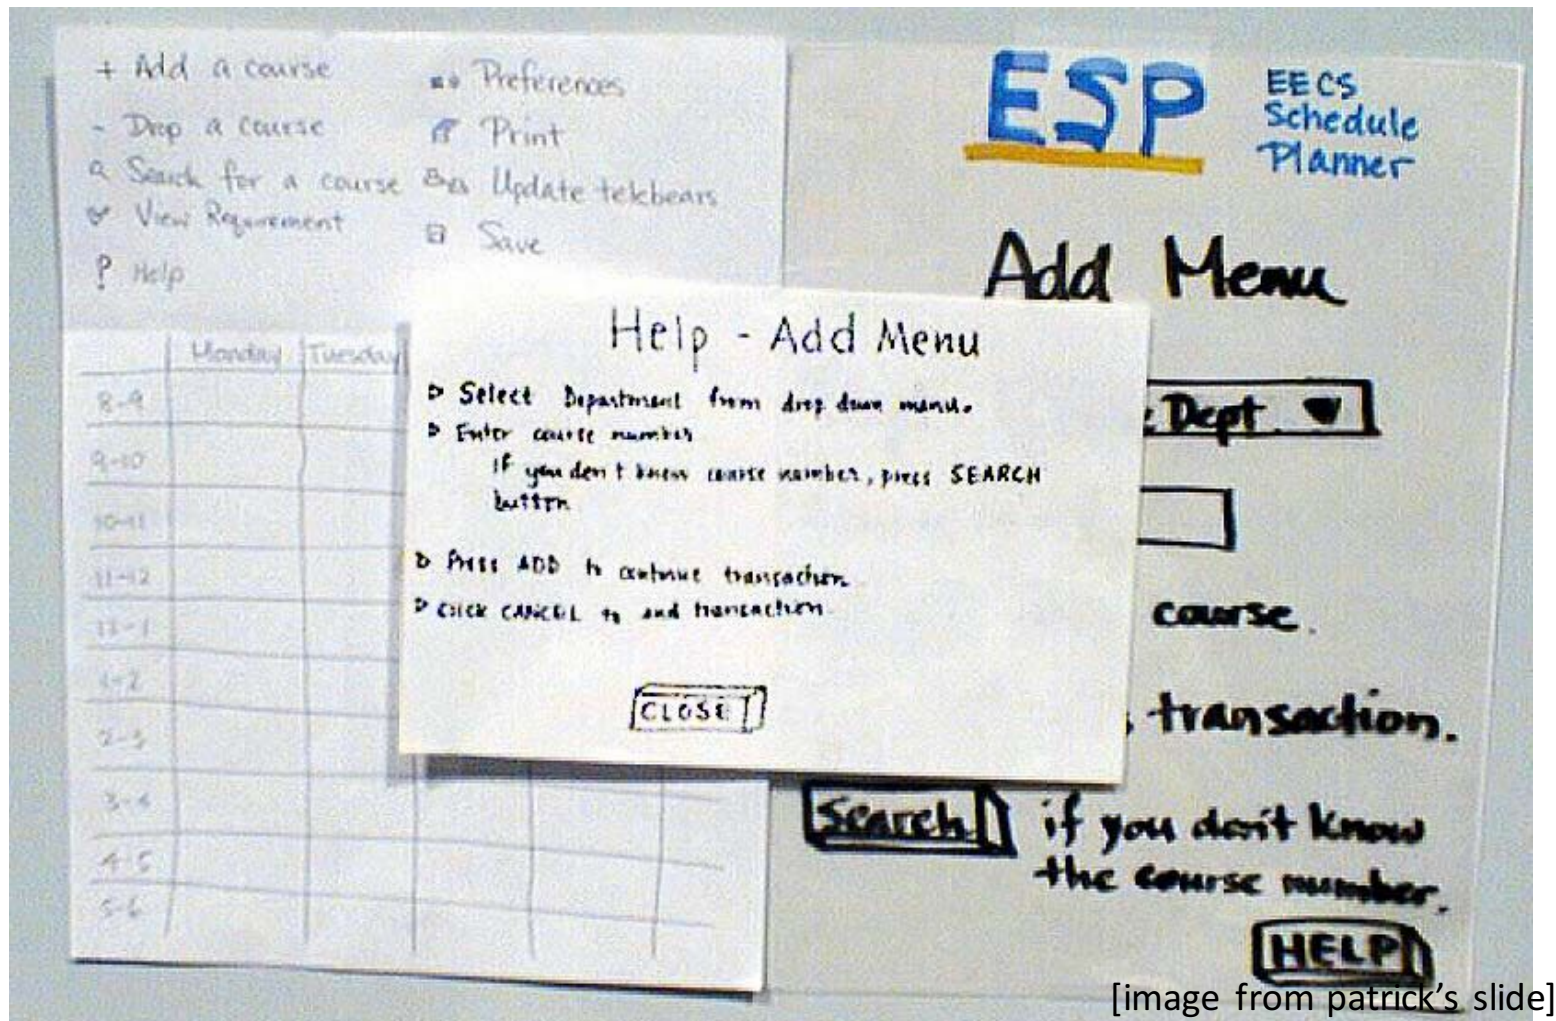 + Add a course
- Drop a course
Search for a course
View Requirement
? Help
Preferences
Print
Update telebears
Save
Monday Tuesday
8-9
9-10
10-11
11-12
12-1
1-2
2-3
3-4
4-5
5-6
ESP
EECS
Schedule
Planner
Add Menu
Help - Add Menu
▷ Select Department from drop down menu.
▷ Enter course number
If you don't know course number, press SEARCH
button
▷ Press ADD to continue transaction
▷ Click CANCEL to end transaction
CLOSE
Dept.
course.
transaction.
Search if you don't know
the course number.
HELP
[image from patrick's slide]